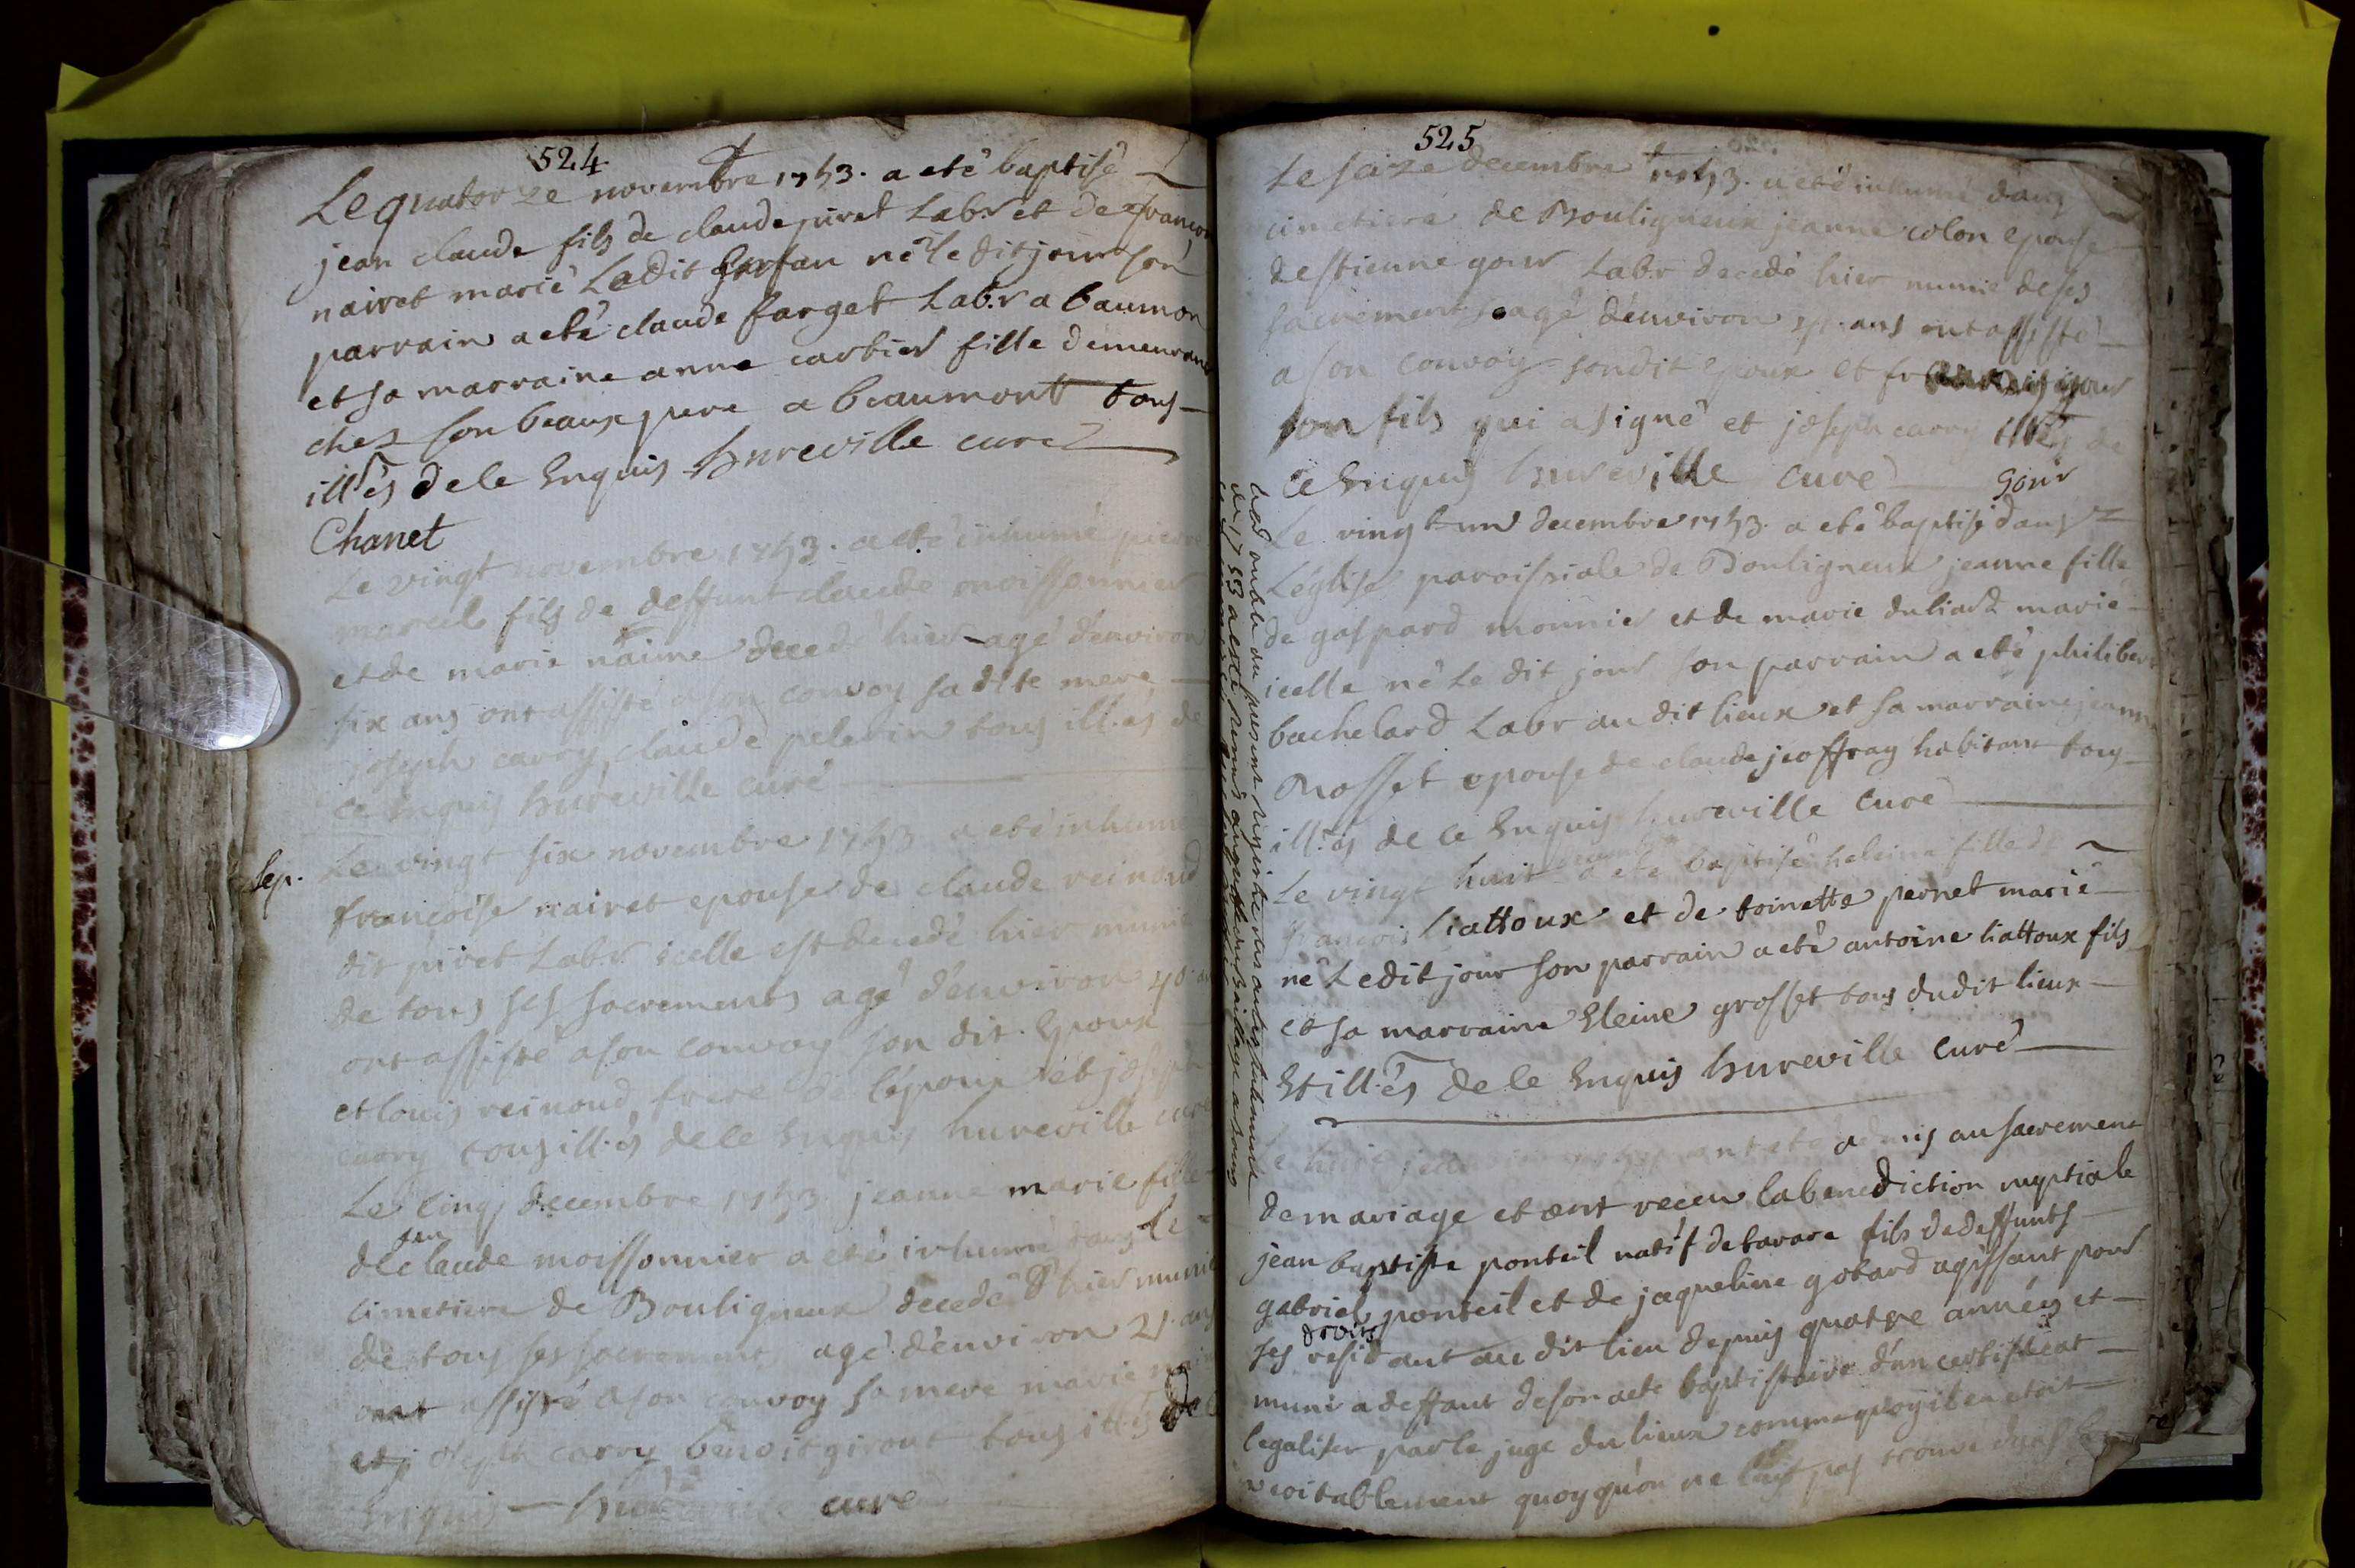 524
Le quatorze novembre 1753. a eté baptisé
jean claude fils de claude piret Labr et de françoise
nairet marié Ledit Enfan né le dit jour son
parrain a eté claude farget Labr a baumon
et sa marraine anne carbier fille demeurant
chez son beaux pere a beaumont tous
illes de le Enquis hureville curé
Chanet
Le vingt novembre 1753. a eté inhumé pierre
marcel fils de deffunt claude moissonnier
et de marie naime decedé hier agé d'environ
six ans ont assisté a son convoy sa dite mere
joseph carry claude pelerin tous ill.es de
ce enquis hureville curé
Sep.
Le vingt six novembre 1753 a eté inhumé
françoise nairet epouse de claude reinoud
dit piret Labr icelle est decedé hier munie
de tous ses sacrements agé d'environ 40 ans
ont assisté a son convoy son dit Epoux
et louis reinoud frere de l'epoux et joseph
carry tous ill.és de ce Enquis hureville curé
Le cinq decembre 1753. jeanne marie fille
de feu claude moissonnier a eté inhumé dans le
cimetiere de Bouligneux decedé d'hier munie
de tous ses sacrements agé d'environ 21 ans
ont assisté a son convoy sa mere marie
et joseph carry benoit girout tous illés de
Enquis hureville curé
525
Le saize decembre 1753. a eté inhumé dans
cimetiere de Bouligneux jeanne colon epouse
destienne gour Labr decedé hier munie de ses
sacrements agé d'environ ans ont assisté
a son convoy son dit epoux et françois gour
son fils qui a signé et joseph carry illés de
ce Enquis hureville curé gour
Le vingt un decembre 1753. a eté baptisé dans
L'eglise paroissiale de Bouligneux jeanne fille
de gaspard monnier et de marie duliard marie
icelle né Le dit jour son parrain a eté philibert
bachelard Labr au dit lieux et sa marraine jeanne
Mosset epouse de claude jeoffray habitant tous
ill.és de ce Enquis hureville curé
Le vingt huit decembre a eté baptisé heleine fille de
françois liattoux et de toinette pernet marié
né Ledit jour son parrain a eté antoine liattoux fils
et sa marraine Eleine grosset tous dudit lieux
Et ill.és de le Enquis hureville curé
Le huit janvier ont eté admis au sacrement
de mariage et ont receu la benediction nuptiale
jean baptiste ponteil natif de tarare fils de deffunts
gabriel ponteil et de jaqueline gotard agissant pour
ses droits residant au dit lieu depuis quatre années et
muni a deffaut de son acte baptistaire d'un certificat
legaliser par le juge du lieux comme quoy il en etoit
veritablement quoy qu'on ne l'ait pas trouvé dans les
du present registre
de 1753 a eté remis au greffe du Bailliage